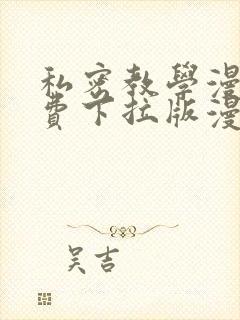 私密教學漫
費下拉版漫
吴吉